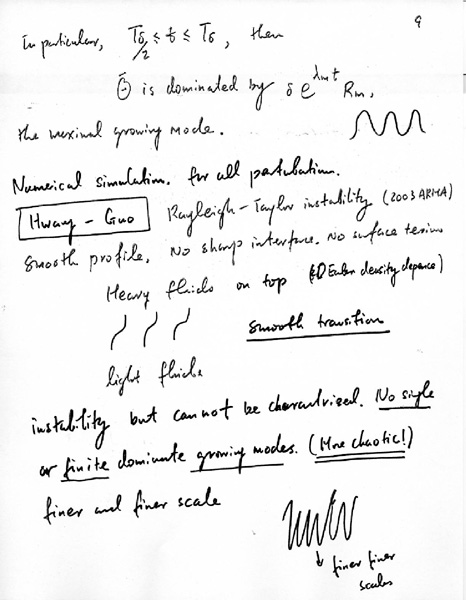 9
In particular, Tδ/2 ≤ t ≤ Tδ, then
Θ̄ is dominated by δ e^{λmt} Rm,
the maximal growing mode.
Numerical simulation. for all pertubation.
Hwang - Guo Rayleigh-Taylor instability (2003 ARMA)
smooth profile. No sharp interface. No surface tension
Heavy fluids on top (Euler density depence)
smooth transition
light fluids
instability but cannot be charaterized. No single
or finite dominate growing modes. (More chaotic!)
finer and finer scale
finer finer
scales